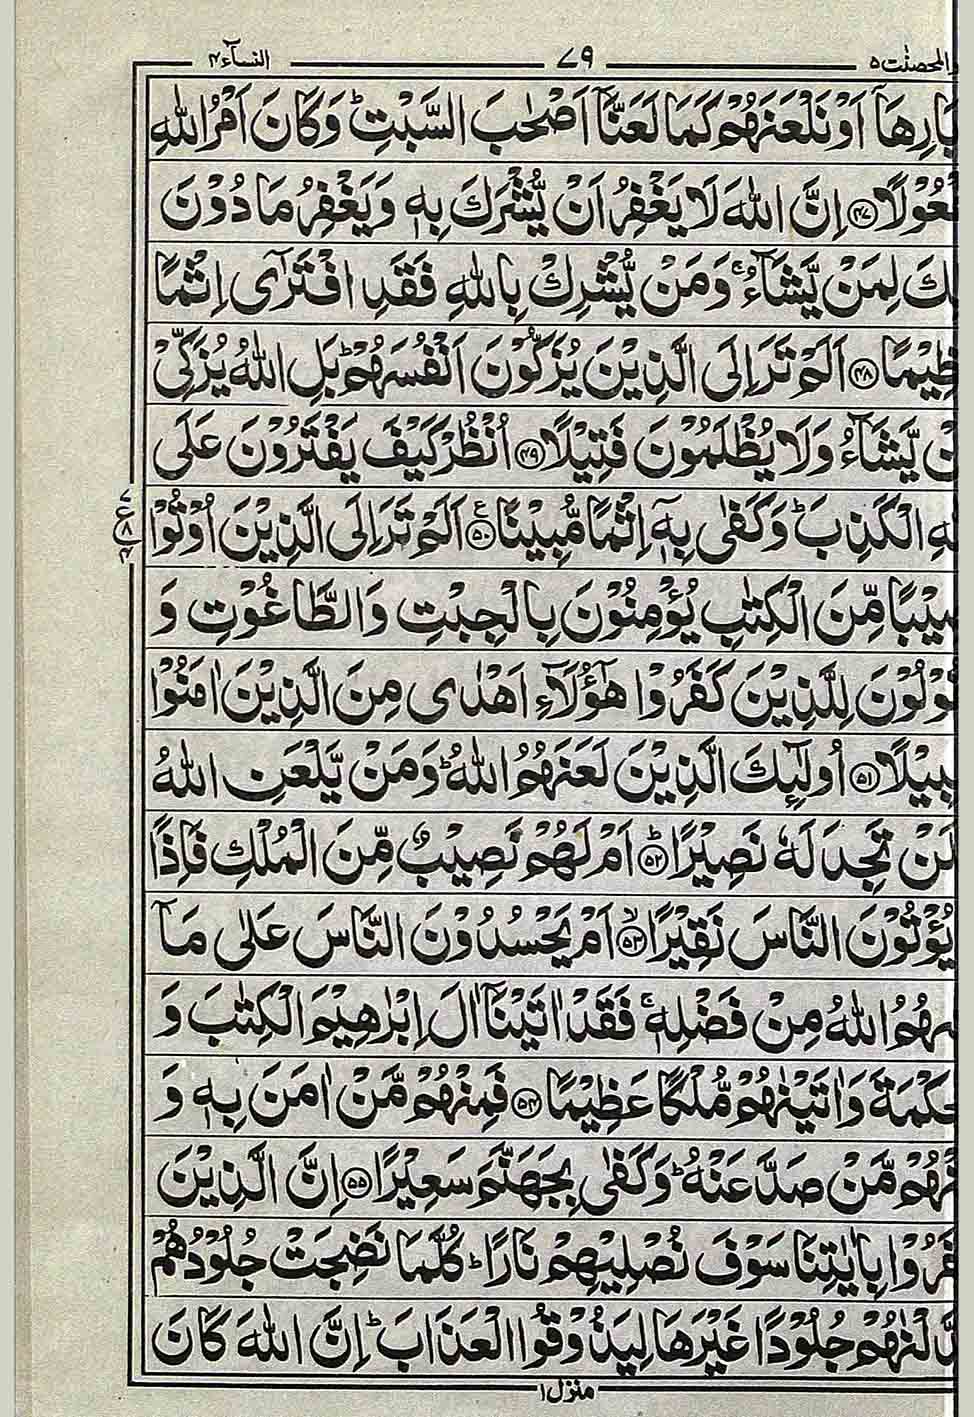 والمحصنٰت ۵ ۷۹ النسآء ۴
اَوْ نَلْعَنَهُمْ كَمَا لَعَنَّاۤ اَصْحٰبَ السَّبْتِ ؕ وَكَانَ اَمْرُ اللّٰهِ
﴿۴۷﴾ اِنَّ اللّٰهَ لَا يَغْفِرُ اَنْ يُّشْرَكَ بِهٖ وَيَغْفِرُ مَا دُوْنَ
لِمَنْ يَّشَآءُ ۚ وَمَنْ يُّشْرِكْ بِاللّٰهِ فَقَدِ افْتَرٰۤى اِثْمًا
﴿۴۸﴾ اَلَمْ تَرَ اِلَى الَّذِيْنَ يُزَكُّوْنَ اَنْفُسَهُمْ ؕ بَلِ اللّٰهُ يُزَكِّيْ
يَّشَآءُ وَلَا يُظْلَمُوْنَ فَتِيْلًا ﴿۴۹﴾ اُنْظُرْ كَيْفَ يَفْتَرُوْنَ عَلَى
الْكَذِبَ ؕ وَكَفٰى بِهٖۤ اِثْمًا مُّبِيْنًا ﴿۵۰﴾ اَلَمْ تَرَ اِلَى الَّذِيْنَ اُوْتُوْا
۷
ع
۸
۴
مِّنَ الْكِتٰبِ يُؤْمِنُوْنَ بِالْجِبْتِ وَالطَّاغُوْتِ وَ
لِلَّذِيْنَ كَفَرُوْا هٰۤؤُلَآءِ اَهْدٰى مِنَ الَّذِيْنَ اٰمَنُوْا
﴿۵۱﴾ اُولٰٓئِكَ الَّذِيْنَ لَعَنَهُمُ اللّٰهُ ؕ وَمَنْ يَّلْعَنِ اللّٰهُ
تَجِدَ لَهٗ نَصِيْرًا ﴿۵۲﴾ ؕ اَمْ لَهُمْ نَصِيْبٌ مِّنَ الْمُلْكِ فَاِذًا
يُؤْتُوْنَ النَّاسَ نَقِيْرًا ﴿۵۳﴾ ۙ اَمْ يَحْسُدُوْنَ النَّاسَ عَلٰى مَاۤ
اللّٰهُ مِنْ فَضْلِهٖ ۚ فَقَدْ اٰتَيْنَاۤ اٰلَ اِبْرٰهِيْمَ الْكِتٰبَ وَ
وَاٰتَيْنٰهُمْ مُّلْكًا عَظِيْمًا ﴿۵۴﴾ فَمِنْهُمْ مَّنْ اٰمَنَ بِهٖ وَ
مَّنْ صَدَّ عَنْهُ ؕ وَكَفٰى بِجَهَنَّمَ سَعِيْرًا ﴿۵۵﴾ اِنَّ الَّذِيْنَ
بِاٰيٰتِنَا سَوْفَ نُصْلِيْهِمْ نَارًا ؕ كُلَّمَا نَضِجَتْ جُلُوْدُهُمْ
جُلُوْدًا غَيْرَهَا لِيَذُوْقُوا الْعَذَابَ ؕ اِنَّ اللّٰهَ كَانَ
منزل ۱